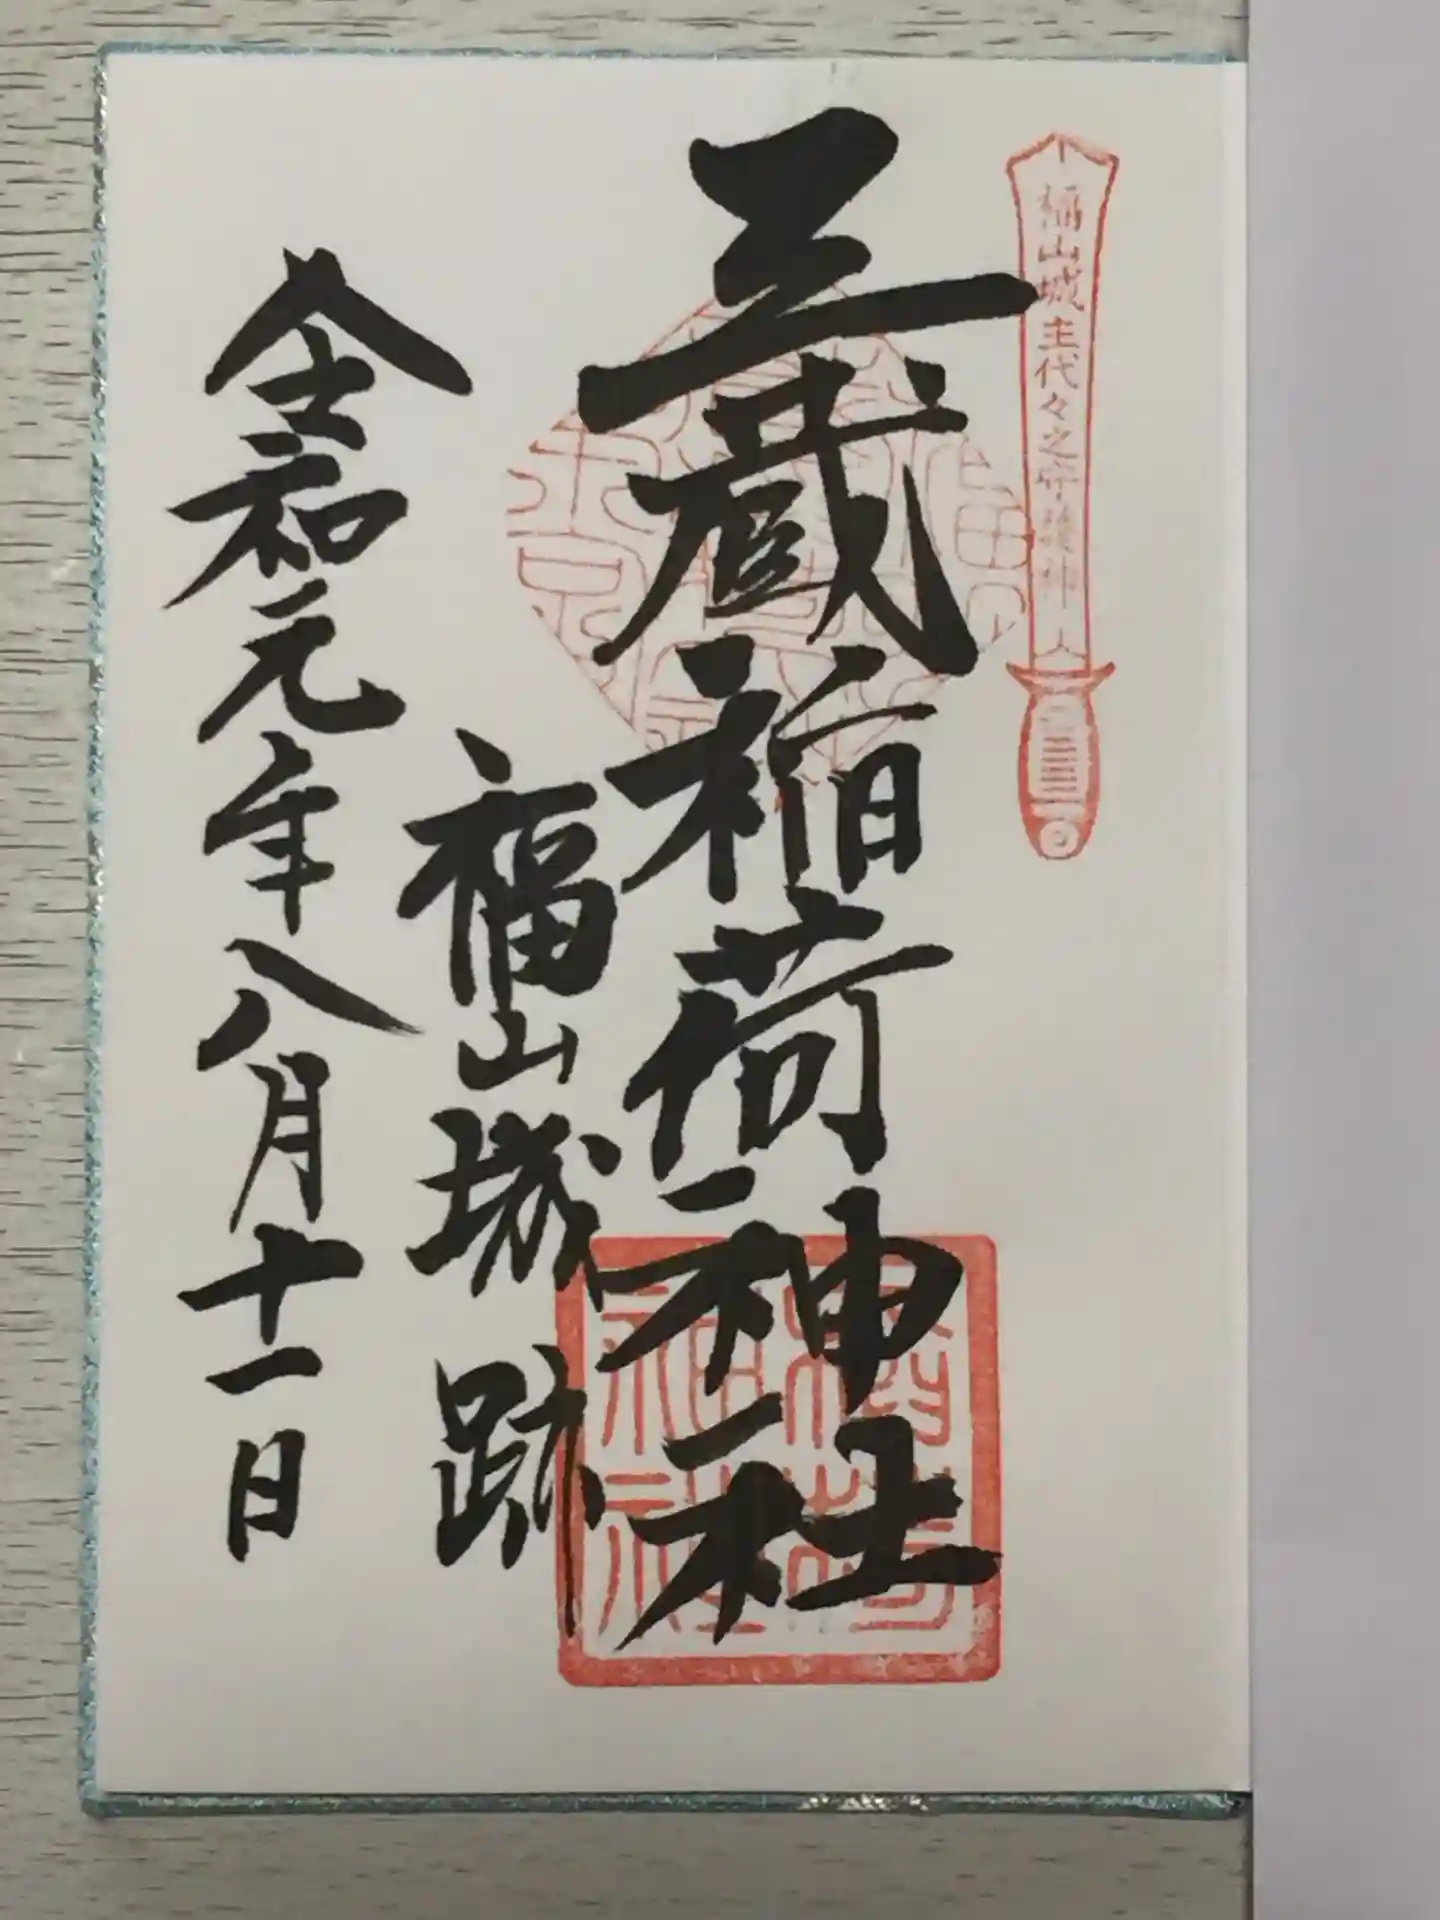 福山城主代々之守護神
三蔵稲荷神社
福山城跡
令和元年八月十一日
稲荷
神社